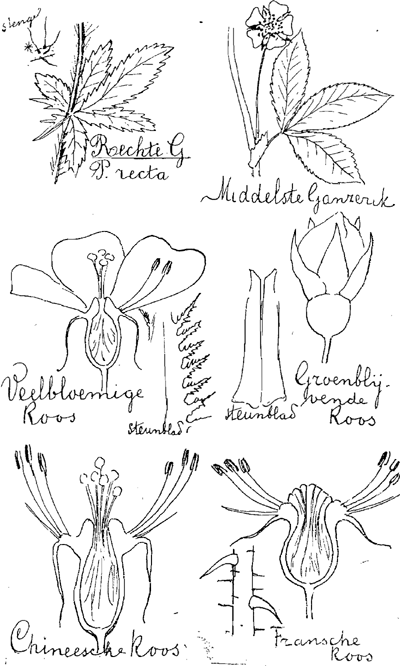 stengel
Rechte G
P. recta
Middelste Ganzerik
Veelbloemige
Roos
steunblad
steunblad
Groenblij-
vende
Roos
Chineesche Roos
Fransche
Roos